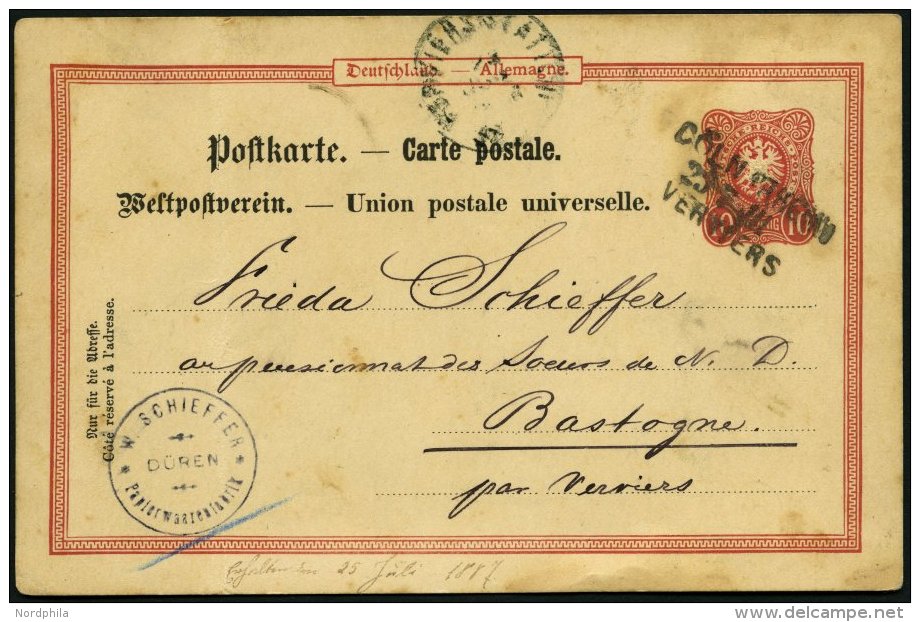 Deutschland — Allemagne.
Postkarte. — Carte postale.
Weltpostverein. — Union postale universelle.
CÖLN
VERVIERS
10 10
Frieda Schieffer
au pensionnat des Soeurs de N. D.
Bastogne.
par Verviers
Nur für die Adresse.
Côté réservé à l'adresse.
* W. SCHIEFFER *
DÜREN
Papierwaarenfabrik
Erhalten den 25 Juli 1887
Nordphila
delcampe.net